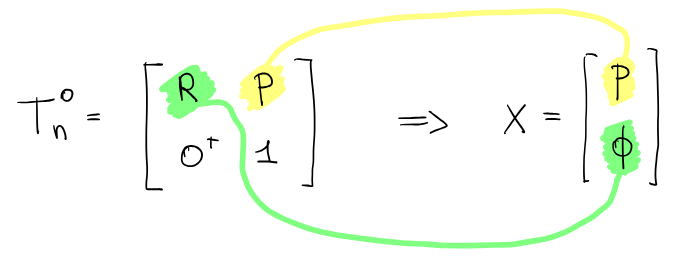 T_n^0 = [ R P ; 0^+ 1 ] ⇒ X = [ P ; ϕ ]